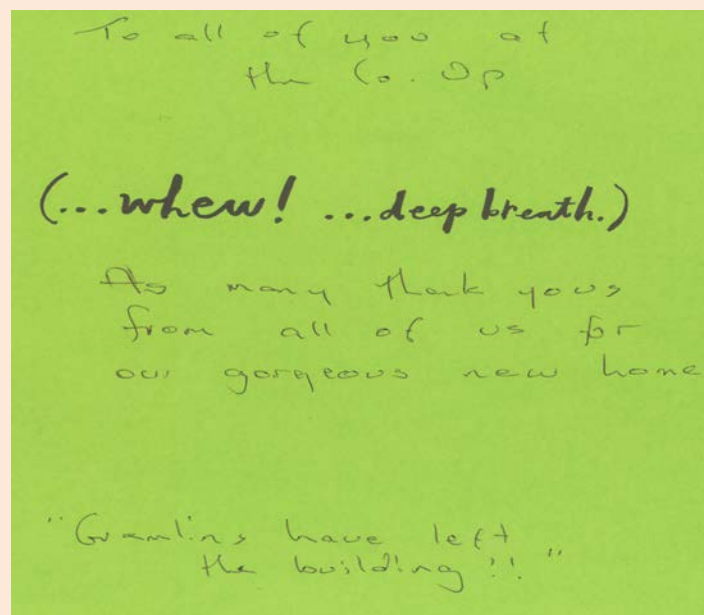 To all of you at
the Co.Op
(...whew! ...deep breath.)
As many thank yous
from all of us for
our gorgeous new home
"Gramlins have left
the building!!"